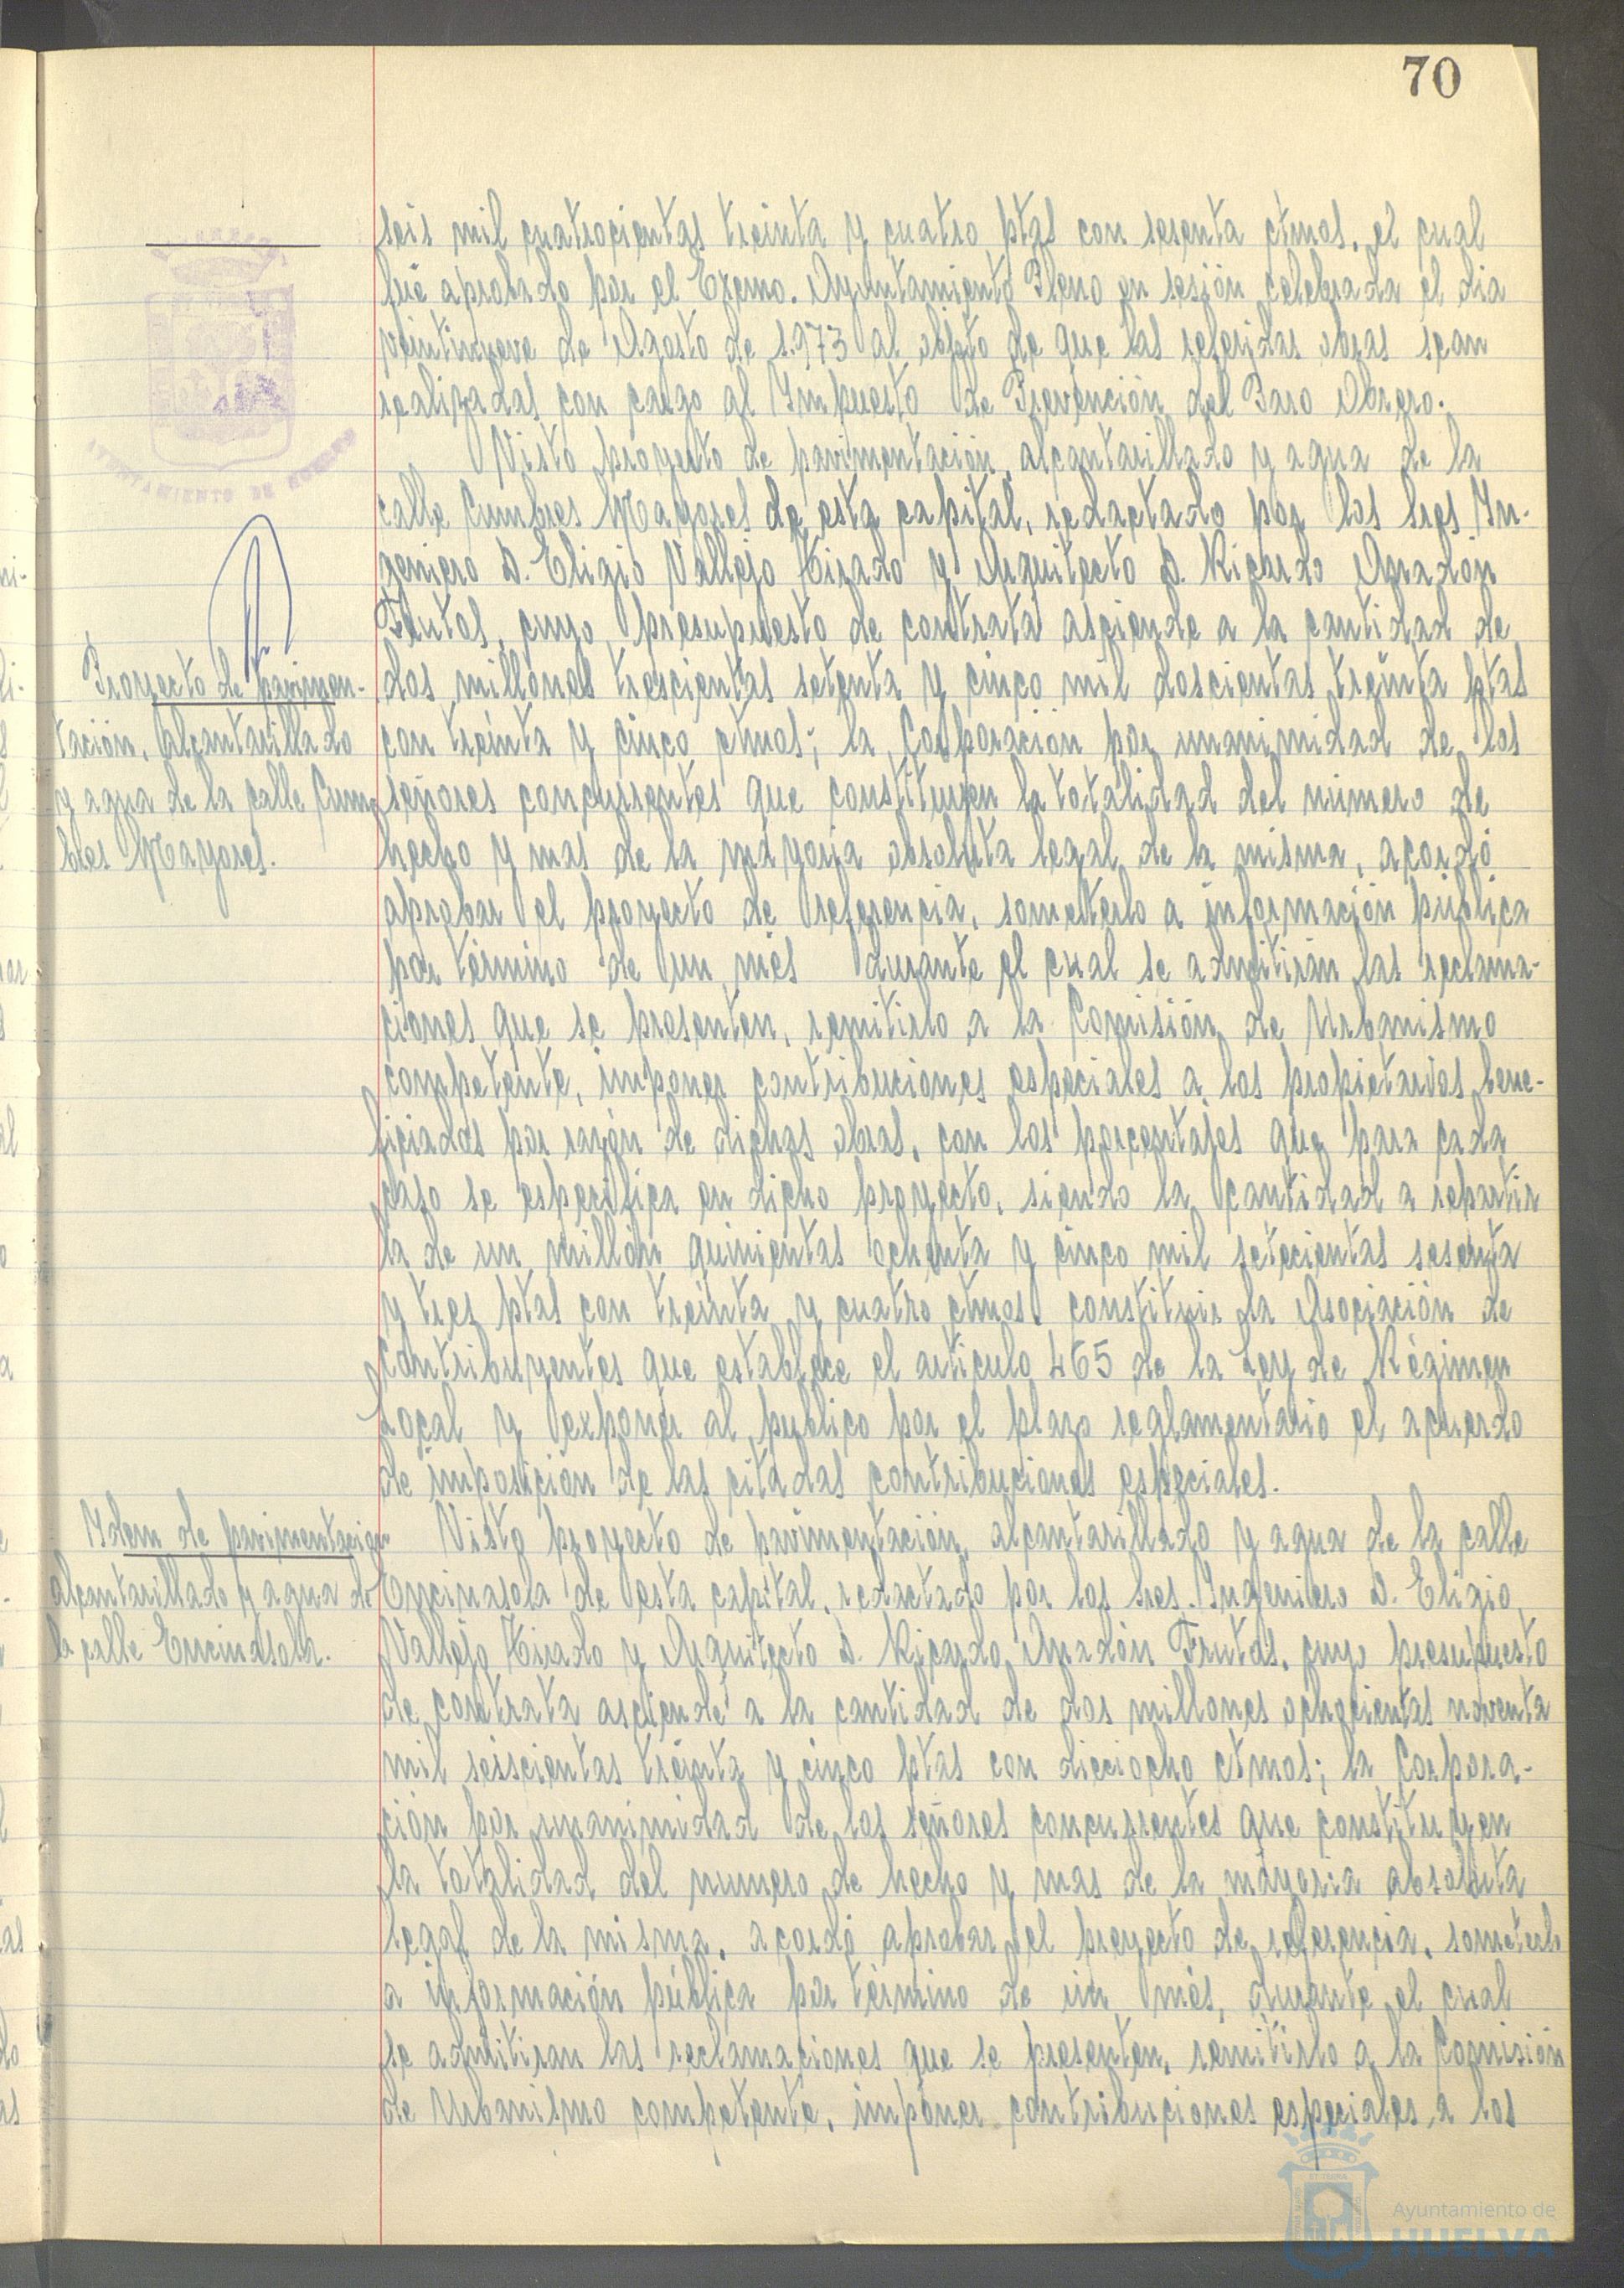 70
seis mil cuatrocientas treinta y cuatro ptas con sesenta ctmos, el cual
fué aprobado por el Excmo. Ayuntamiento Pleno en sesión celebrada el dia
veintinueve de Agosto de 1.973 al objeto de que las referidas obras sean
realizadas con cargo al Impuesto de Prevención del Paro Obrero.
Visto proyecto de pavimentación, alcantarillado y agua de la
calle Cumbres Mayores de esta capital, redactado por los sres In-
geniero D. Eligio Vallejo Tirado y Arquitecto D. Ricardo Anadón
Frutos, cuyo presupuesto de contrata asciende a la cantidad de
dos millones trescientas setenta y cinco mil doscientas treinta ptas
con treinta y cinco ctmos; la Corporación por unanimidad de los
señores concurrentes que constituyen la totalidad del número de
hecho y mas de la mayoria absoluta legal de la misma, acordó
aprobar el proyecto de referencia, someterlo a información pública
por término de un més durante el cual se admitirán las reclama-
ciones que se presenten, remitirlo a la Comisión de Urbanismo
competente, imponer contribuciones especiales a los propietarios bene-
ficiados por razón de dichas obras, con los porcentajes que para cada
caso se especifica en dicho proyecto, siendo la cantidad a repartir
la de un millón quinientas ochenta y cinco mil setecientas sesenta
y tres ptas con treinta y cuatro ctmos. constituir la Asociación de
Contribuyentes que establece el articulo 465 de la Ley de Régimen
Local y exponer al publico por el plazo reglamentario el acuerdo
de imposición de las citadas contribuciones especiales.
Visto proyecto de pavimentación, alcantarillado y agua de la calle
Encinasola de esta capital, redactado por los sres. Ingeniero D. Eligio
Vallejo Tirado y Arquitecto D. Ricardo Anadón Frutos, cuyo presupuesto
de contrata asciende a la cantidad de dos millones ochocientas noventa
mil seiscientas treinta y cinco ptas con dieciocho ctmos; la Corpora-
ción por unanimidad de los señores concurrentes que constituyen
la totalidad del numero de hecho y mas de la mayoria absoluta
legal de la misma, acordó aprobar el proyecto de referencia, someterlo
a información pública por término de un més, durante el cual
se admitiran las reclamaciones que se presenten, remitirlo a la Comisión
de Urbanismo competente, imponer contribuciones especiales a los
Proyecto de pavimen-
tación, alcantarillado
y agua de la calle Cum-
bres Mayores.
Idem de pavimentación
alcantarillado y agua de
la calle Encinasola.
AYUNTAMIENTO DE HUELVA
Ayuntamiento de
HUELVA